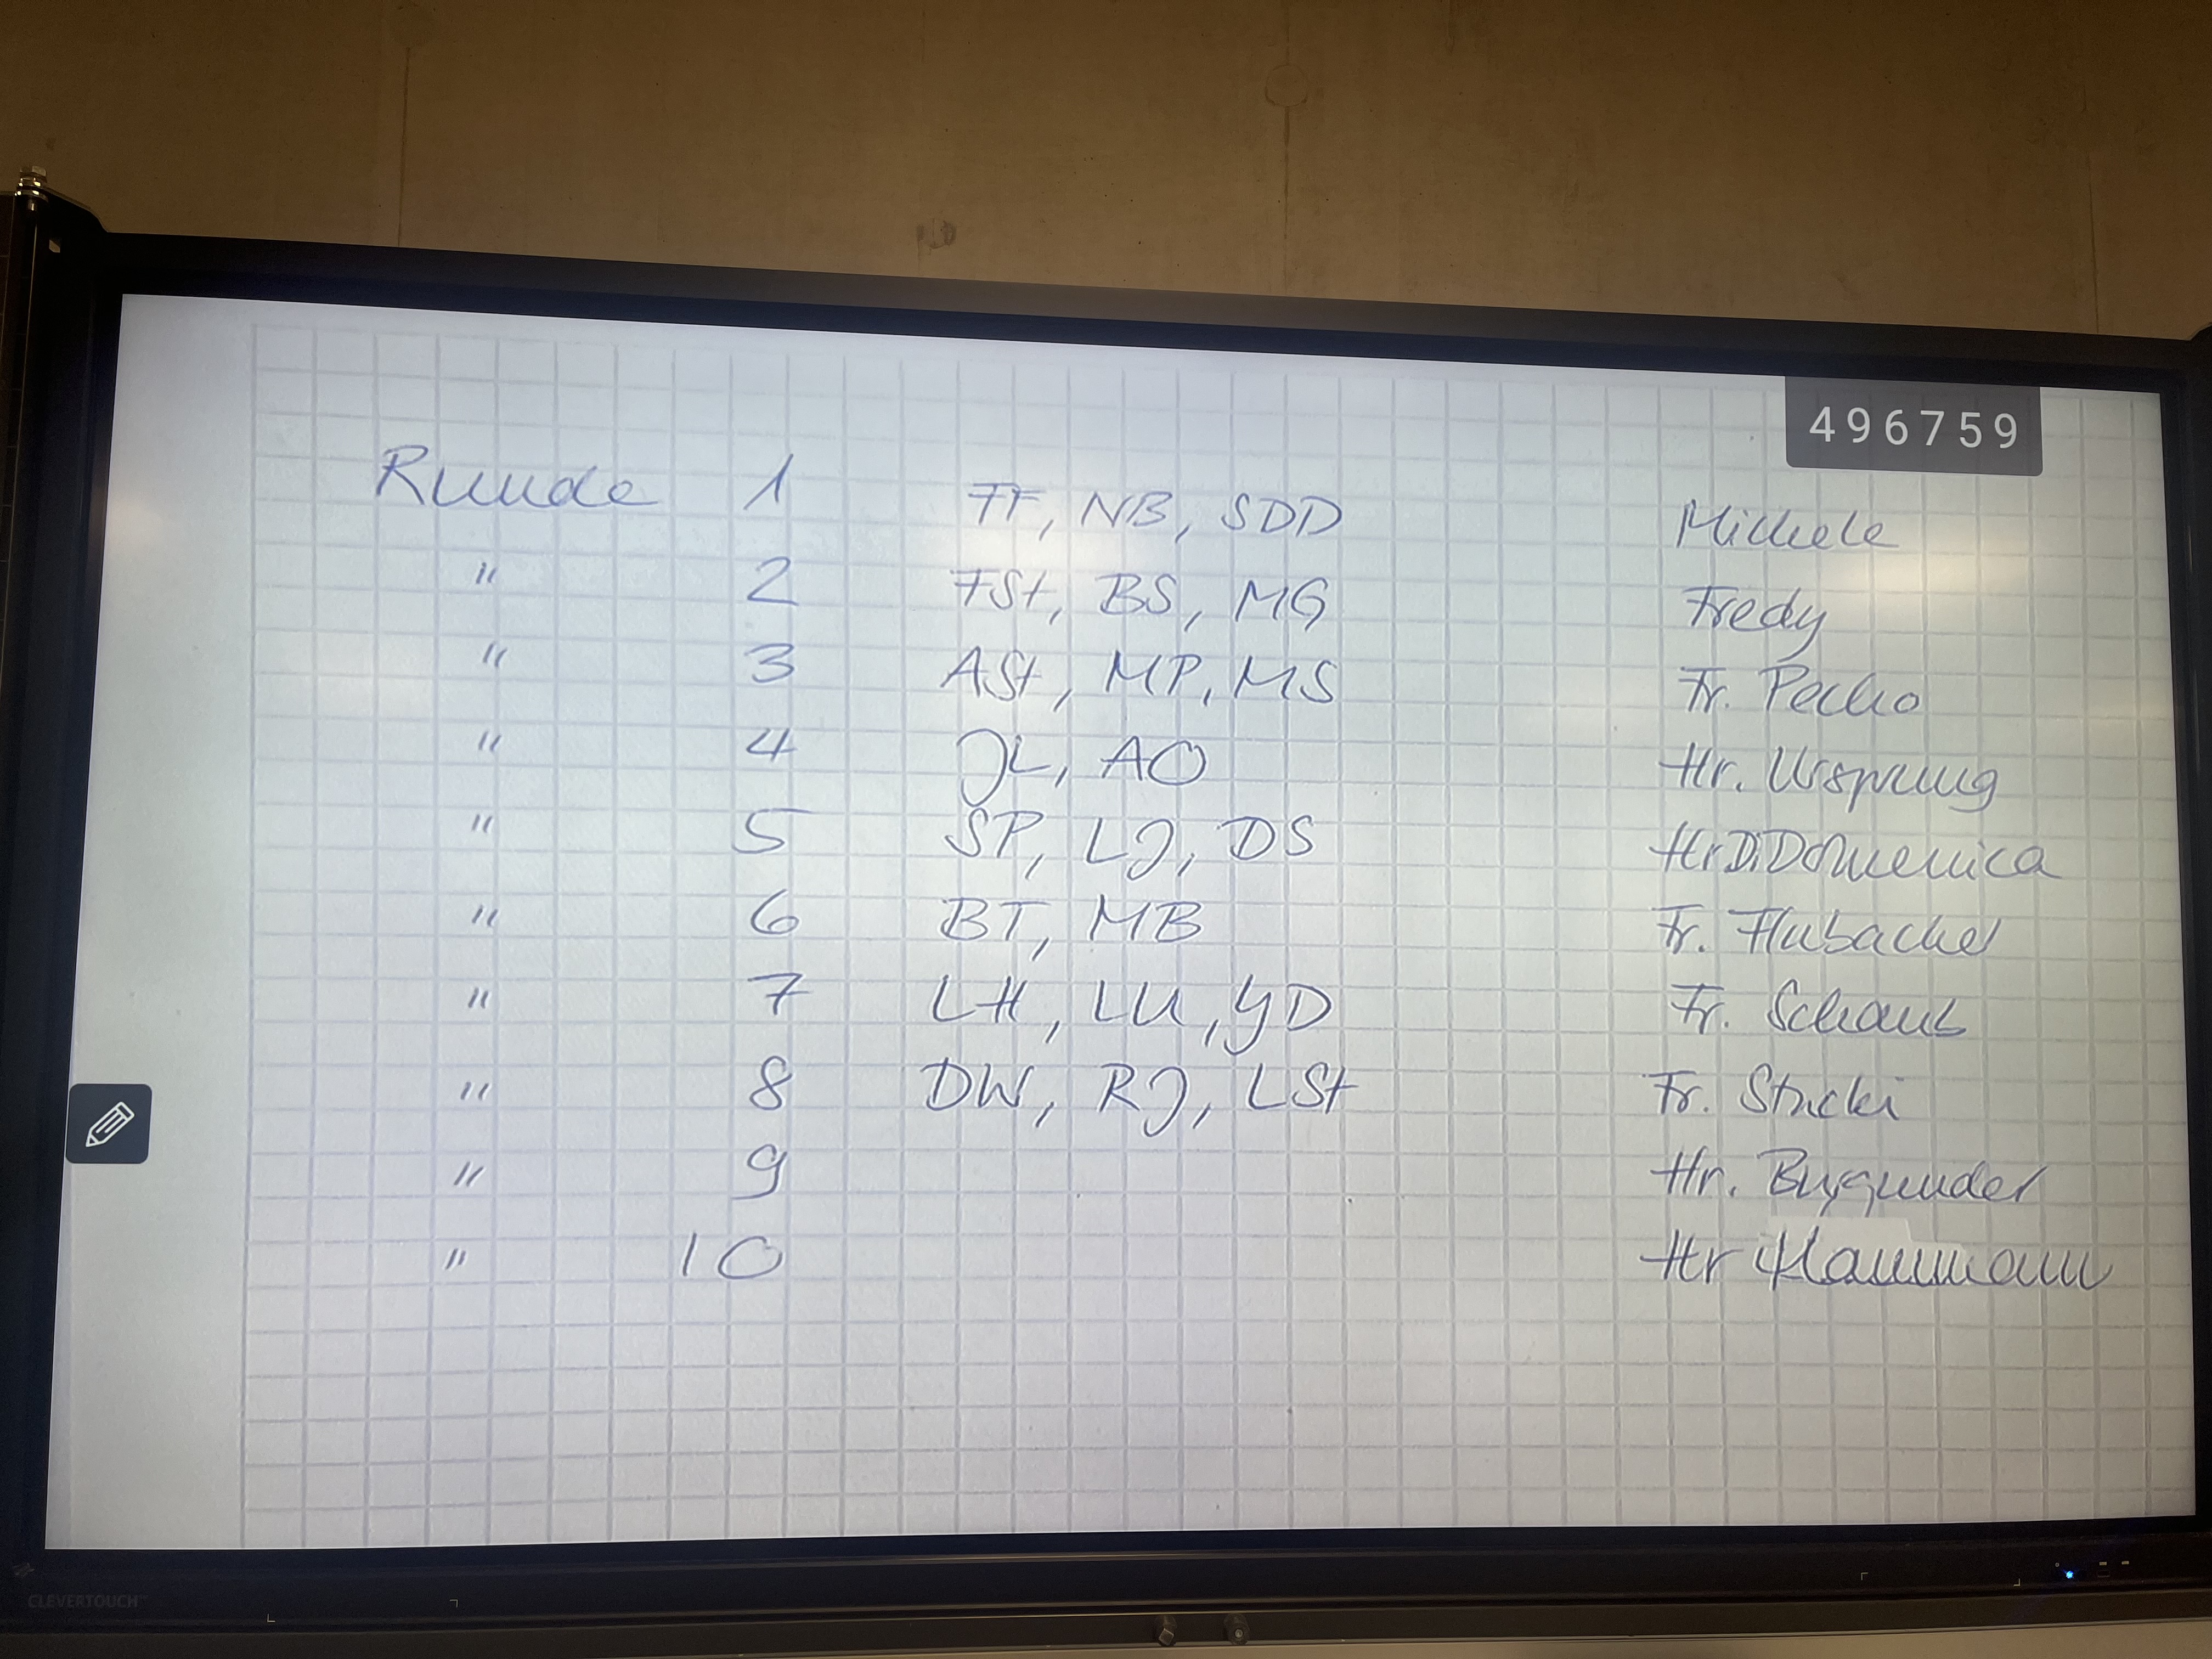 496759
Runde 1 FF, NB, SDD Michele
" 2 FSt, BS, MG Fredy
" 3 ASt, MP, MS Fr. Pecho
" 4 JL, AO Hr. Ursprung
" 5 SP, LJ, DS Hr Di Domenica
" 6 BT, MB Fr. Flubacher
" 7 LH, LU, YD Fr. Schaub
" 8 DW, RJ, LSt Fr. Stucki
" 9 Hr.
" 10 Hr
CLEVERTOUCH